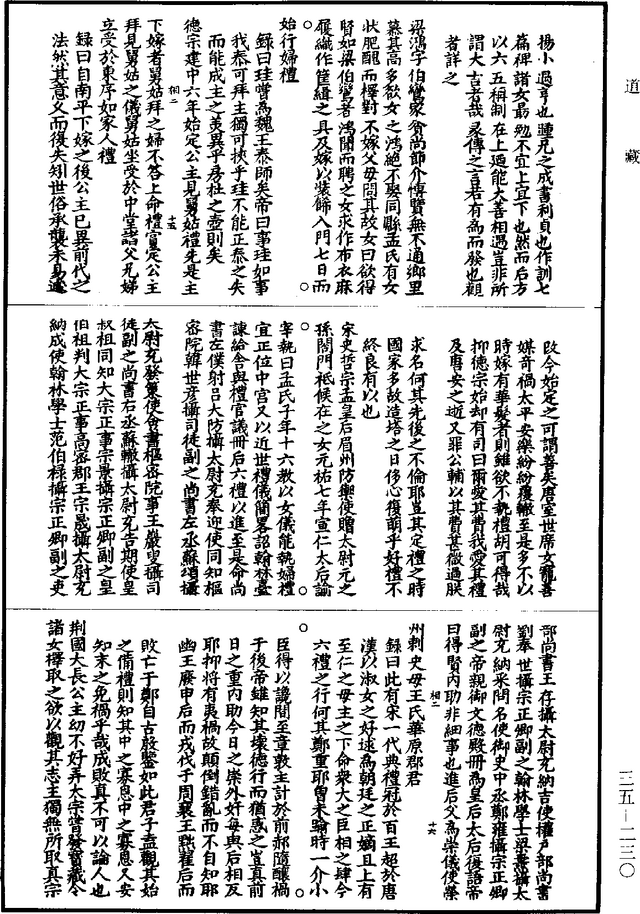 道藏
楊小過亨也踵充之成書利貞也作訓七
篇裨諸女最勉不宜上宜下也然而后方
以六五稱制在上過能大善相遇豈非所
謂大吉者哉录傳之言若有為而發也觀
者詳之
梁鴻字伯鸞家貧尚節介博覽無不通鄉里
慕其高多欲女之鴻絕不娶同縣孟氏有女
狀肥醜而擇對不嫁父母問其故女曰欲得
賢如梁伯鸞者鴻聞而聘之女求作布衣麻
履織作筐緝之具及嫁以裝飾入門七日而
始行婦禮
錄曰珪嘗為魏王泰師矣帝曰事珪如事
我泰可拜主獨可挾乎珪不能正泰之失
而能成主之美異乎房杜之壼則矣
德宗建中六年始定公主見舅姑禮先是主
下嫁者舅姑拜之婦不答上命禮官定公主
拜見舅姑之儀舅姑坐受於中堂諸父兄娣
立受於東序如家人禮
錄曰自南平下嫁之後公主已異前代之
法然其意久而復失矧世俗承襲未易遽
改今始定之可謂善矣唐室世席女寵喜
媒奇禍太平安樂紛紛覆轍至是多不以
時嫁有華髮者則雖欲不執禮胡可得哉
抑德宗始却有司曰爾愛其費我愛其禮
及唐安之逝又罪公輔以其費甚微過朕
求名何其先後之不倫耶豈其定禮之時
國家多故造塔之日侈心復萌乎好禮不
終良有以也
宋史哲宗孟皇后眉州防禦使贈太尉元之
孫閤門祗候在之女元祐七年宣仁太后諭
宰執曰孟氏子年十六教以女儀能執婦禮
宜正位中宮又以近世禮儀簡畧詔翰林臺
諫給舍與禮官議冊后六禮以進至是命尚
書左僕射呂大防攝太尉充奉迎使同知樞
密院韓世彥攝司徒副之尚書左丞蘇頌攝
太尉充發策使僉書樞密院事王嚴叟攝司
徒副之尚書右丞蘇轍攝太尉充告期使皇
叔祖同知大宗正事宗景攝宗正卿副之皇
伯祖判大宗正事高密郡王宗晟攝太尉充
納成使翰林學士范伯祿攝宗正卿副之吏
部尚書王存攝太尉充納吉使權戶部尚書
劉奉世攝宗正卿副之翰林學士梁燾攝太
尉充納采問名使御史中丞鄭雍攝宗正卿
副之帝親御文德殿冊為皇后太后復語帝
曰得賢內助非細事也進后父為崇儀使榮
州刺史母王氏華原郡君
錄曰此有宋一代典禮冠於百王超於唐
漢以淑女之好逑為朝廷之正嫡且上有
至仁之母主之下命衆大之臣相之肆今
六禮之行何其鄭重耶曾未踰時一介小
臣得以讒間至章敦主計於前郝隨釀禍
于後帝雖知其壞德行而猶惑之豈真前
日之重內助今日之崇外奸每與后相反
耶抑將有夷禍故顛倒錯亂而不自知耶
幽王廢申后而戎伐于周襄王黜翟后而
敗亡于鄭自古殷鑒如此君子盍觀其始
之備禮則知其中之寡恩中之寡恩又安
知末之免禍乎哉成敗真不可以論人也
荆國大長公主幼不好弄太宗嘗發寶藏令
諸女擇取之欲以觀其志主獨無所取真宗
三五—二三〇